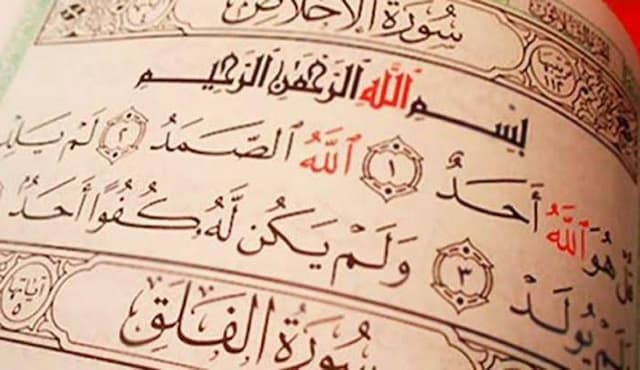 سُورَةُ الإِخْلَاصِ
ترتيبها ١١٢
بِسْمِ ٱللَّهِ ٱلرَّحْمَٰنِ ٱلرَّحِيمِ
هُوَ ٱللَّهُ أَحَدٌ ١ ٱللَّهُ ٱلصَّمَدُ ٢ لَمْ يَلِدْ
يُولَدْ ٣ وَلَمْ يَكُن لَّهُۥ كُفُوًا أَحَدٌۢ
سُورَةُ الفَلَقِ
آياتها ٥